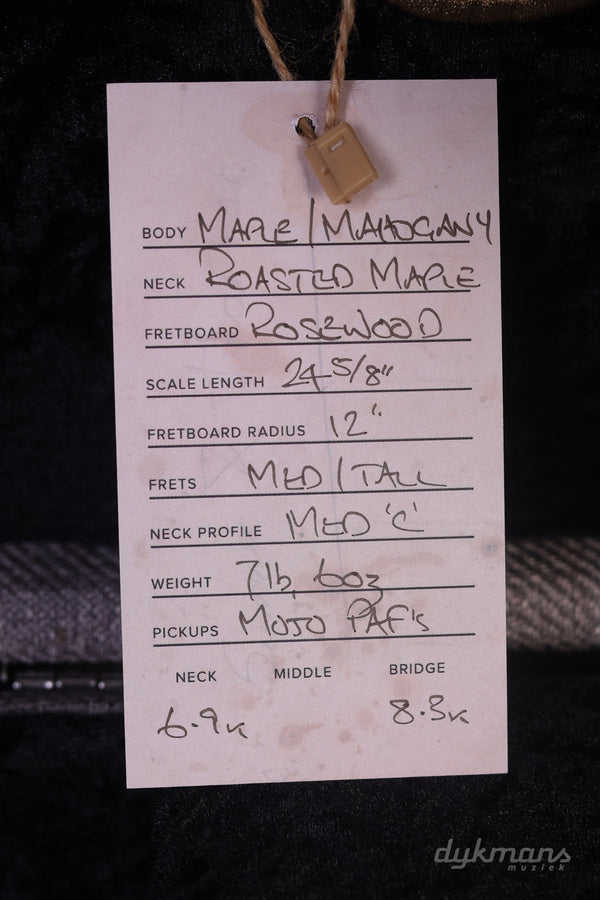 BODY MAPLE / MAHOGANY
NECK ROASTED MAPLE
FRETBOARD ROSEWOOD
SCALE LENGTH 24 5/8"
FRETBOARD RADIUS 12"
FRETS MED / TALL
NECK PROFILE MED 'C'
WEIGHT 7lb, 6oz
PICKUPS MOJO PAF's
NECK MIDDLE BRIDGE
6.9K 8.3K
dykmans
muziek